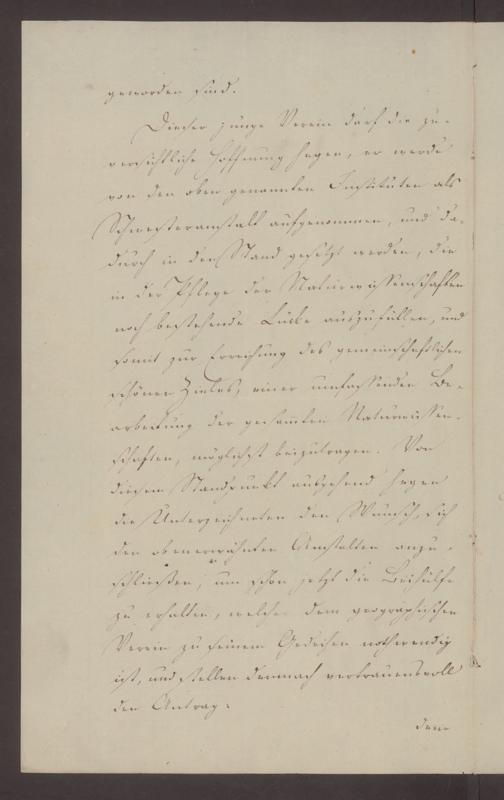 geworden sind.
Dieser junge Verein darf die zu-
versichtliche Hoffnung hegen, er werde
von den oben genannten Instituten als
Schwesteranstalt aufgenommen, und da-
durch in den Stand gesetzt werden, die
in der Pflege der Naturwissenschaften
noch bestehende Lücke auszufüllen, und
somit zur Erreichung des gemeinschaftlichen
schönen Zieles, einer umfassenden Be-
arbeitung der gesammten Naturwissen-
schaften, möglichst beizutragen. Von
diesem Standpunkt ausgehend hegen
die Unterzeichneten den Wunsch, sich
den obenerwähnten Anstalten anzu-
schliessen, um schon jetzt die Beihülfe
zu erhalten, welche dem geographischen
Verein zu seinem Gedeihen nothwendig
ist, und stellen demnach vertrauensvoll
den Antrag:
dem